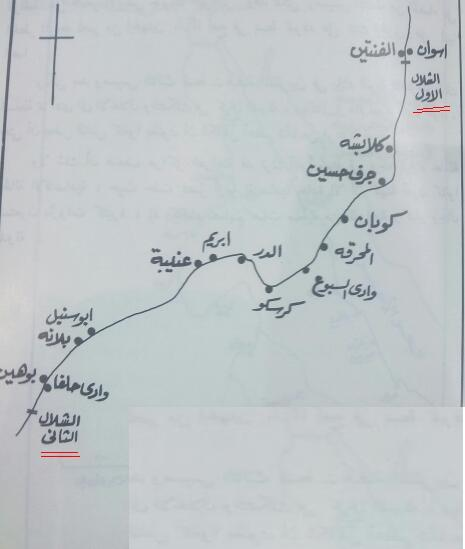 اسوان
الفنتين
الشلال
الاول
كلابشه
جرف حسين
كوبان
المحرقه
وادى السبوع
كرسكو
الدر
ابريم
عنيبة
ابوسنبل
بلانه
بوهين
وادى حلفا
الشلال
الثانى